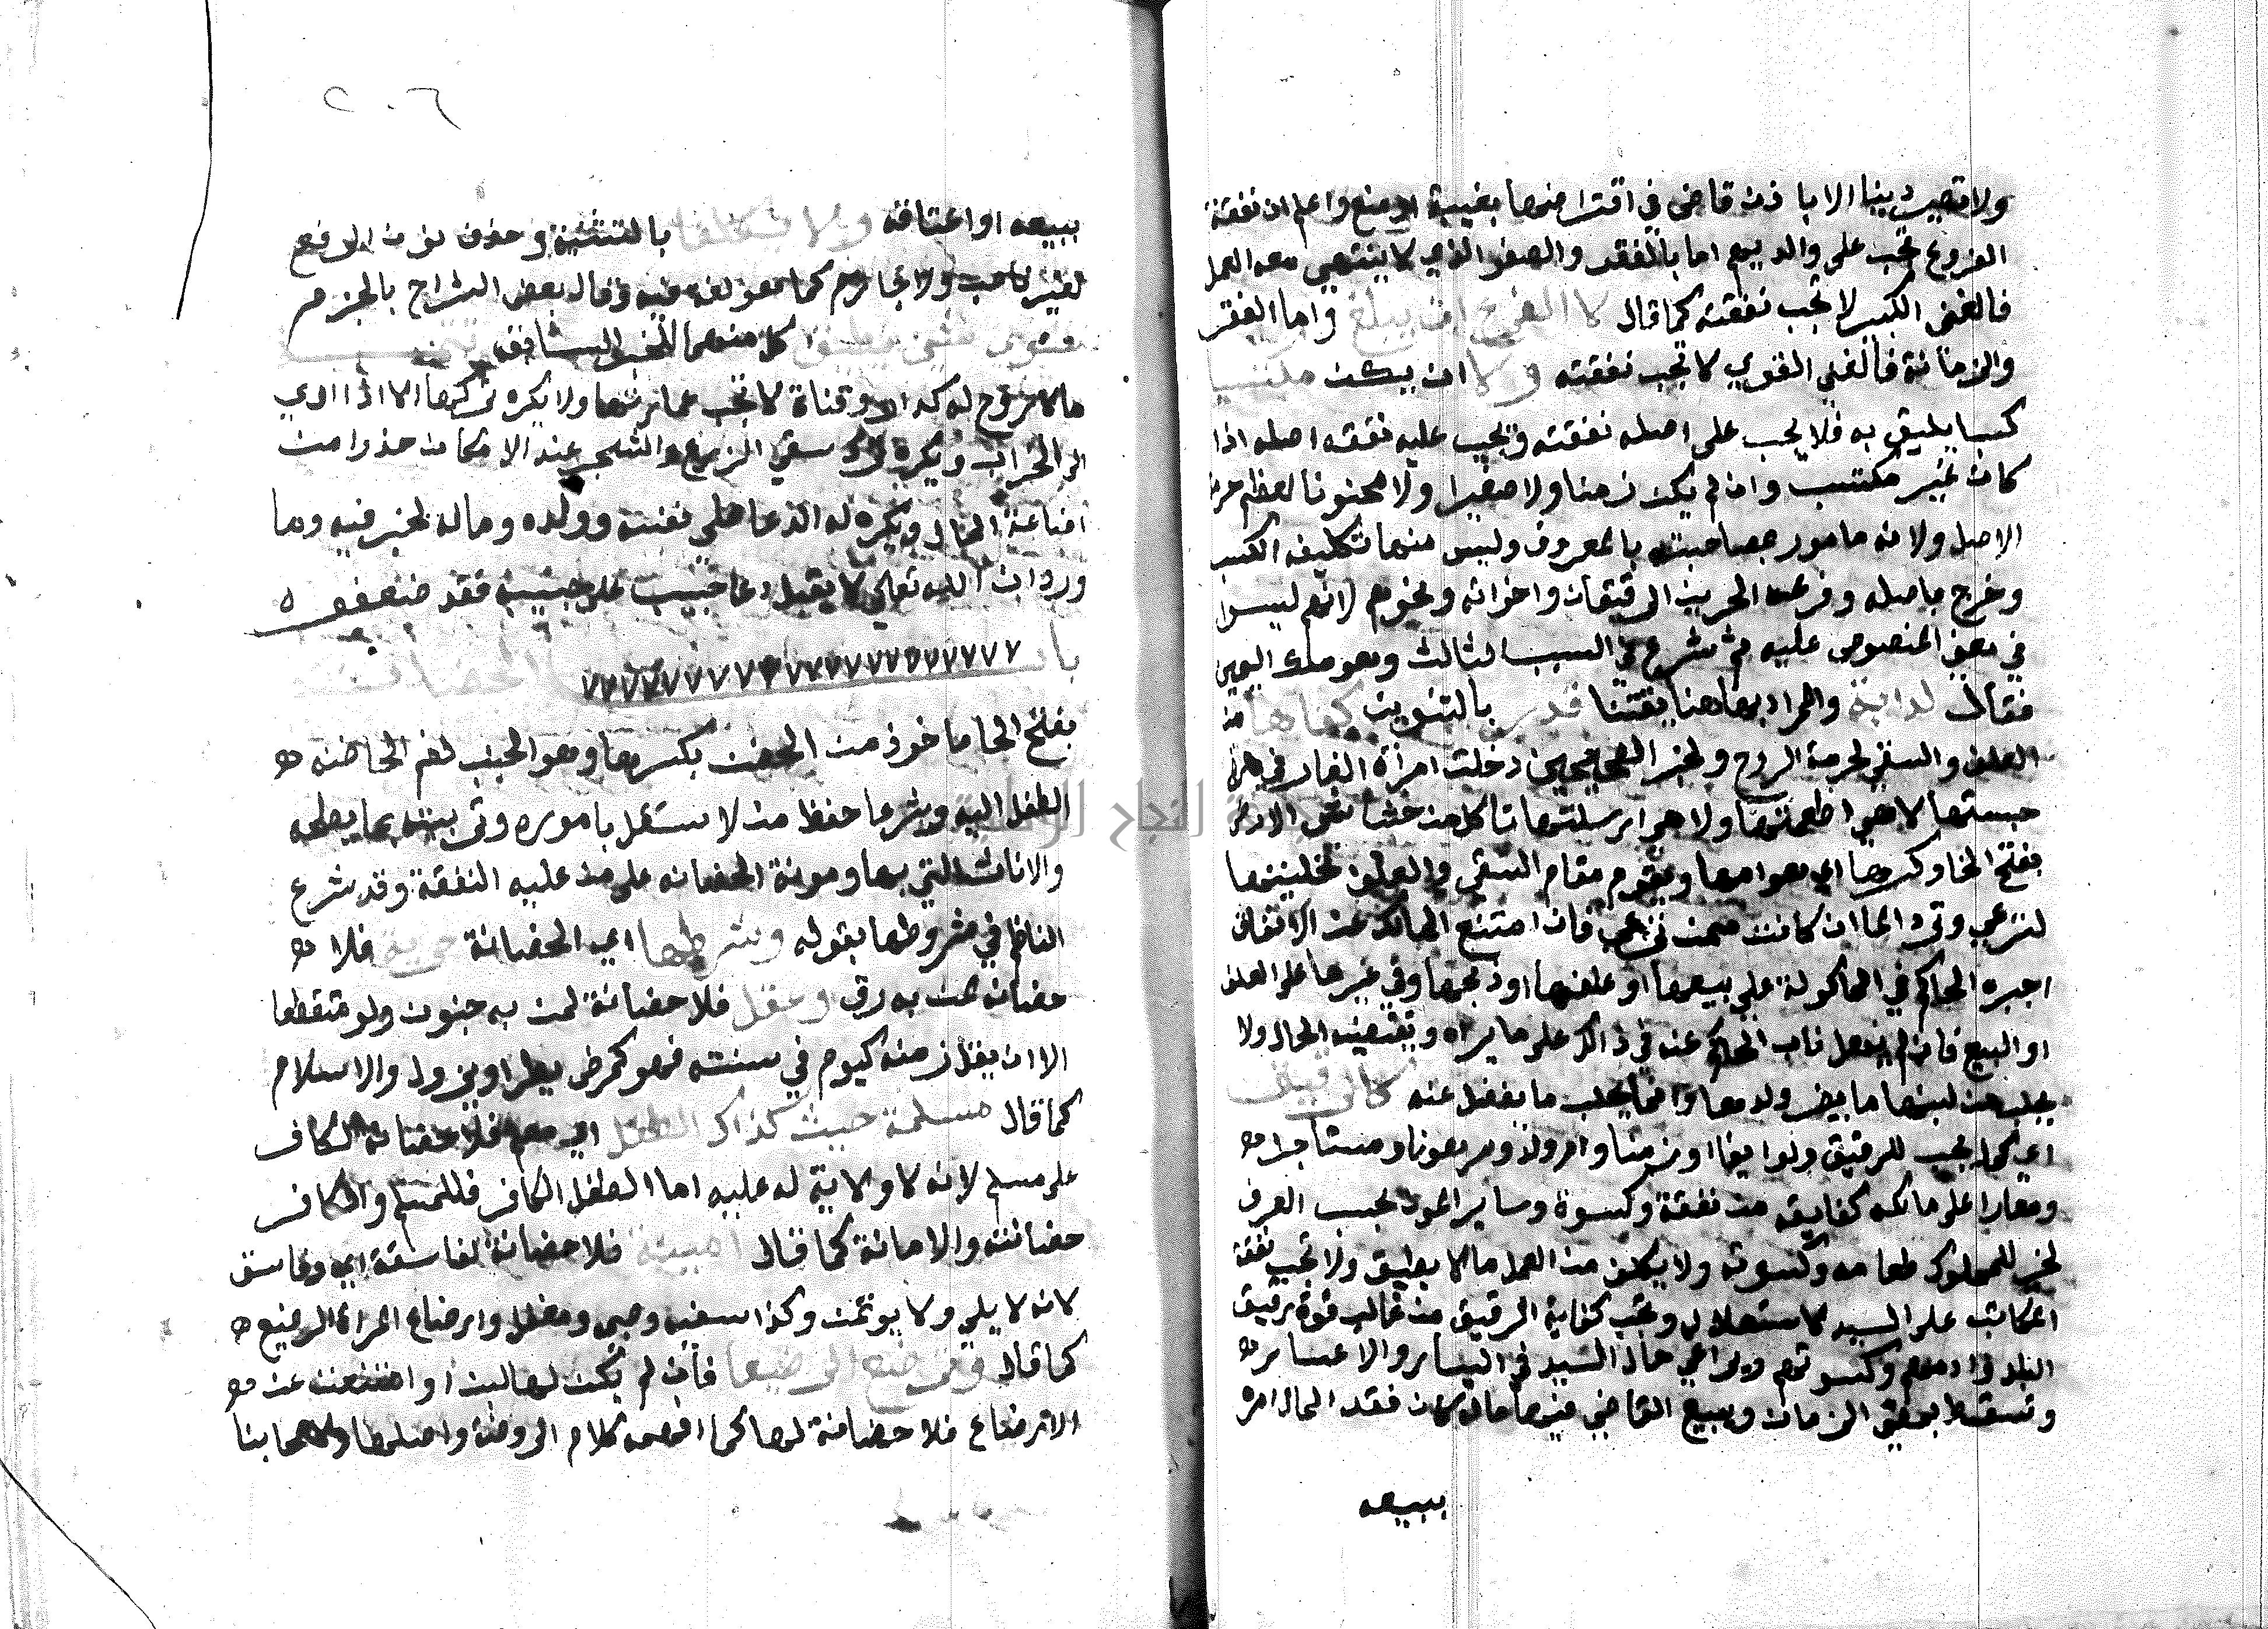 ولا تصير دينا الا باذن قاضي في اقتراضها بغيبة او منع واعلم ان نفقة
الفروع تجب على والديهم اما بالفقر والصغر الذي لا يتهيى معه العمل
فالغني الكبير لا تجب نفقته كما قال لا الفرع ان يبلغ واما الفقر
والزمانة فالغني القوي لا تجب نفقته ولا ان يكن مكتسبا
كسبا يليق به فلا يجب على اصله نفقته ويجب عليه نفقه اصله اذا
كان غير مكتسب وان لم يكن زمنا ولا صغيرا ولا مجنونا لعظم حرمة
الاصل ولانه مامور بمصاحبته بالمعروف وليس منها تكليف الكسب
وخرج باصله وفرعه الحرين الرقيقان واخوانه ونحوهم لانهم ليسوا
في معنى المنصوص عليه ثم شرع في السبب الثالث وهو ملك اليمين
فقال لدابة والمراد بها هنا يقتنا قدر بالتنوين كفاها من
العلف والسقي لحرمة الروح ولخبر الصحيحين دخلت امراة النار في هرة
حبستها لا هي اطعمتها ولا هي ارسلتها تاكل من خشاش الارض
بفتح الخا وكسرها اي هوامها ويقوم مقام السقي والعلف تخليتها
لترعى وترد الما ان كانت ممن ترعى فان امتنع المالك عن الانفاق
اجبره الحاكم في الماكولة على بيعها او علفها او ذبحها وفي غيرها على العلف
او البيع فان لم يفعل ناب الحاكم عنه في ذالك على ما يراه ويقتضيه الحال ولا
يحلب من لبنها ما يضر ولدها وانما يحلب ما يفضل عنه كالرقيق
اي كما يجب للرقيق ولو ابقا او زمنا وام ولد ومرهونا ومستاجرا
ومعارا على مالكه كفايته من نفقة وكسوة وساير المون بحسب العرف
لخبر للمملوك طعامه وكسوته ولا يكلف من العمل ما لا يطيق ولا تجب نفقة
المكاتب على السيد لاستقلاله وتجب كفاية الرقيق من غالب قوة رقيق
البلد وادمهم وكسوتهم ويراعي حال السيد في اليسار والاعسار
وتسقط بمضي الزمان ويبيع القاضي فيها ماله فان فقد المال امره
ببيعه
٢٠٦
ببيعه او اعتاقه ولا تكلفا بالتثنية وحذف نون الرفع
لغير ناصب ولا جازم كما هو لغة فيه وقال بعض الشراح بالجزم
سوى شي يطيق كل منهما للخبر السابق تتمة
ما لا روح له كدار وقناة لا تجب عمارتها ولا يكره تركها الا اذا ادى
الى الخراب ويكره ترك سقي الزرع والشجر عند الامكان حذرا من
اضاعة المال ويكره له الدعا على نفسه وولده وماله لخبر فيه وما
ورد ان الله تعالى لا يقبل دعا حبيب على حبيبه فقد ضعفوه
باب الحضانة
بفتح الحا ماخوذ من الحضن بكسرها وهو الجنب لضم الحاضنه
الطفل اليه وشرعا حفظ من لا يستقل باموره وتربيته بما يصلحه
والاناث اليق بها ومونة الحضانه على من عليه النفقة وقد شرع
الناظم في شروطها بقوله وشرطها اي الحضانة حرية فلا
حضانه لمن به رق وعقل فلا حضانة لمن به جنون ولو متقطعا
الا ان يقل زمنه كيوم في سنته فهو كمرض يطرا ويزول والاسلام
كما قال مسلمة حيث كذاك الطفل اي مسلم فلا حضانة لكافر
على مسلم لانه لا ولاية له عليه اما الطفل الكافر فللمسلم والكافر
حضانته والامانة كما قال امينة فلا حضانة لفاسقة اي وفاسق
لانه لا يلي ولا يوتمن وكذا سفيه وصبي ومغفل وارضاع المراة الرضيع
كما قال وترضع الرضيعا فان لم يكن لها لبن او امتنعت عن
الارضاع فلا حضانة لها كما افهمه كلام الروضة واصلها